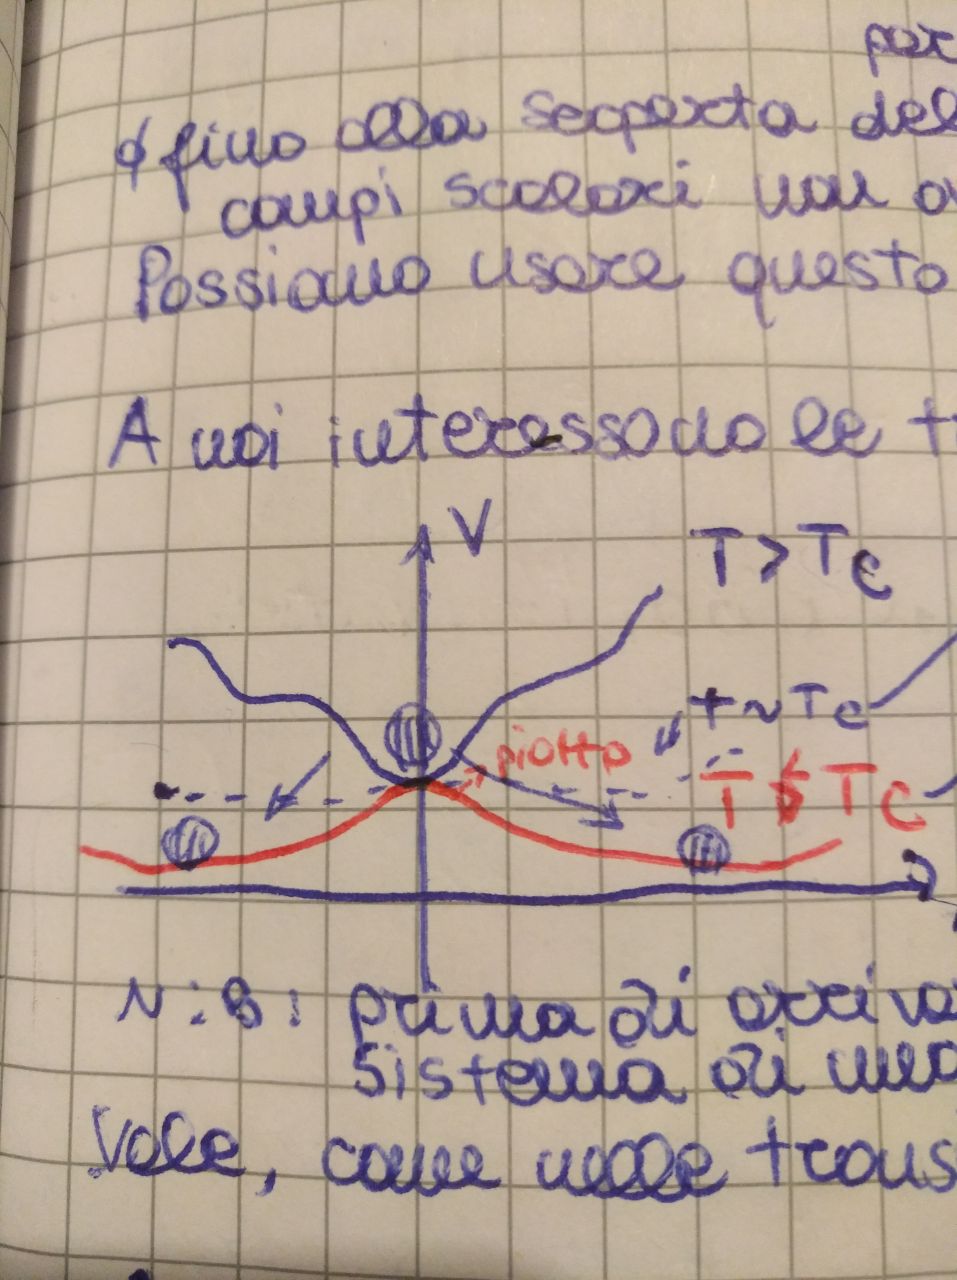 per
fino alla scoperta del
campi scalari non a
Possiamo usare questo
A noi interessano le t
V
T > Tc
T ~ Tc
piatto
T < Tc
N.B: prima di arriva
sistema di
Vale, come nelle trans